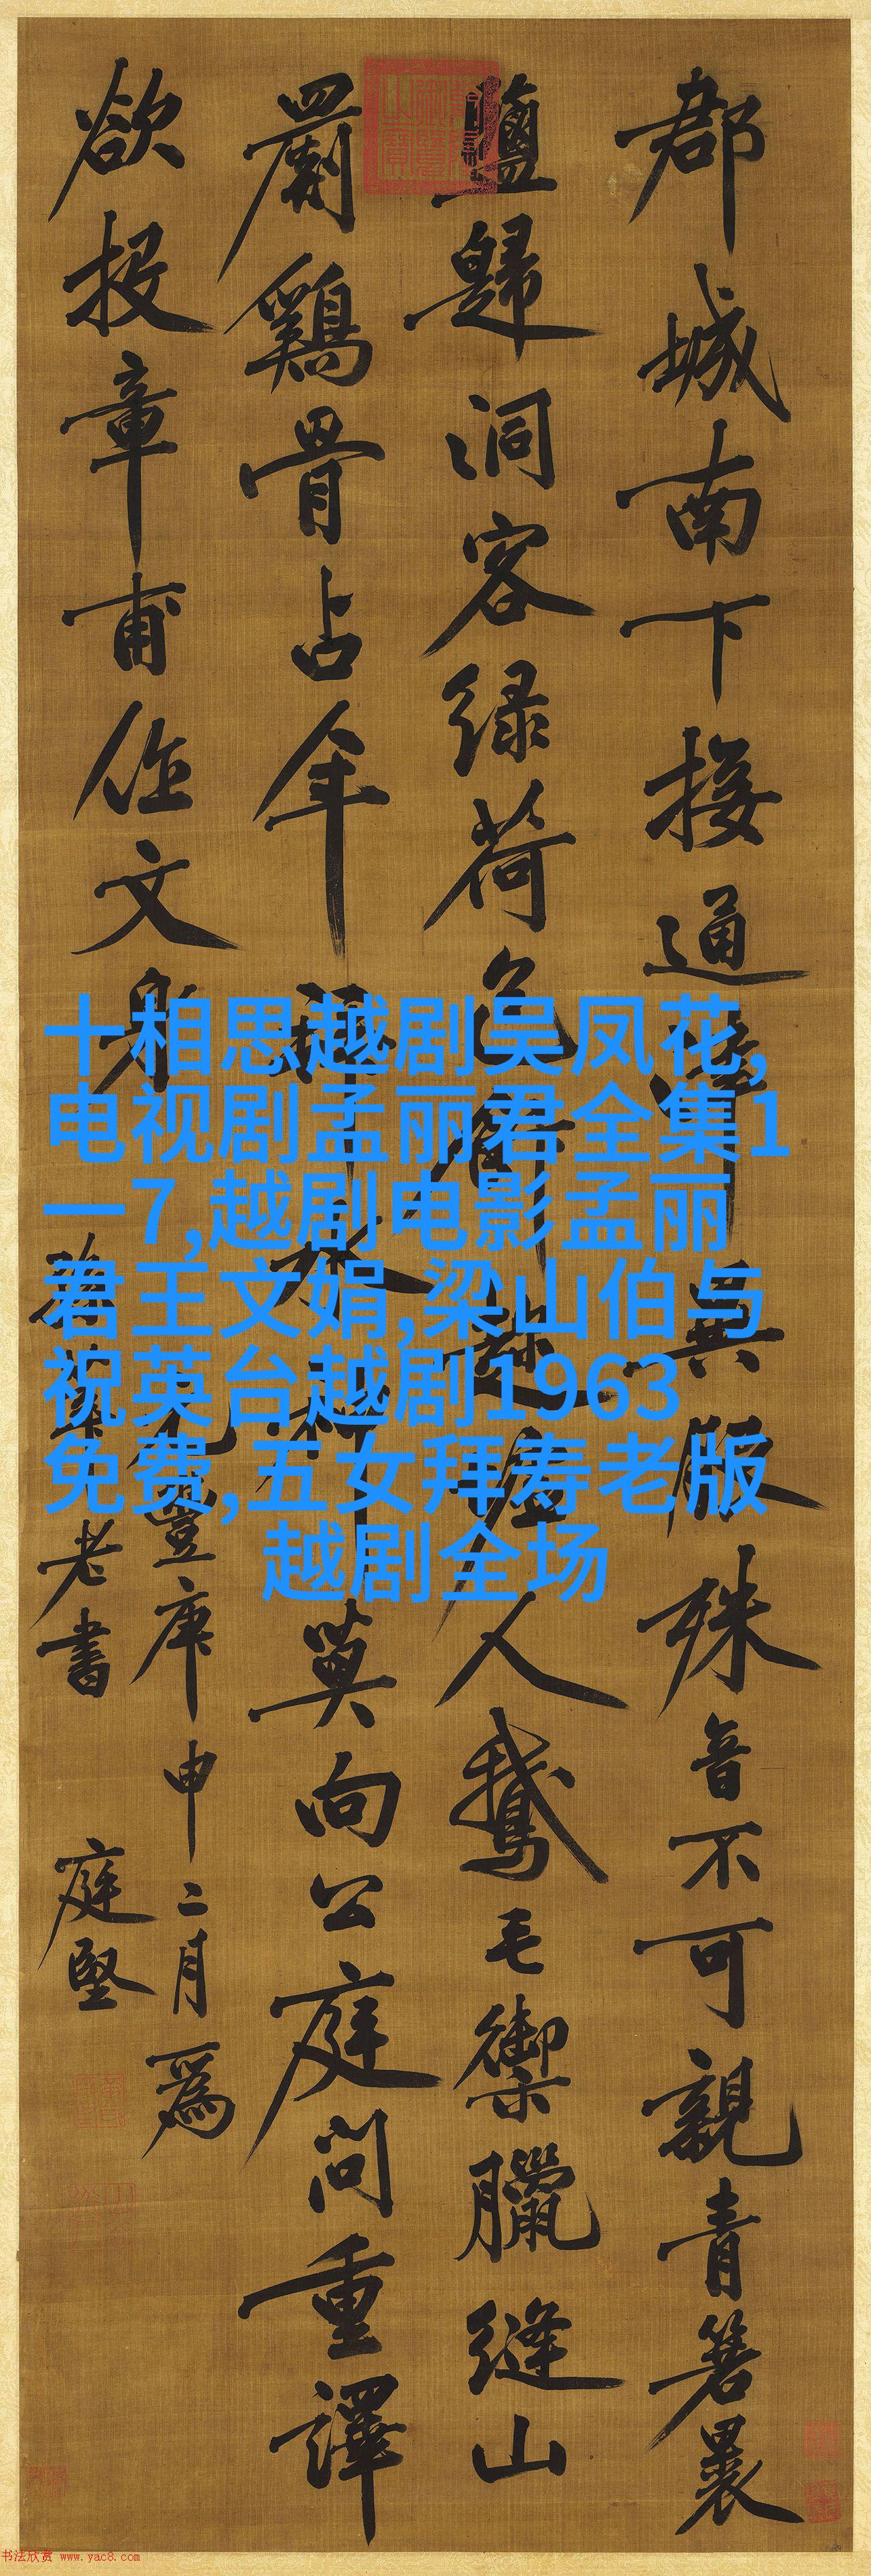 郡城南下接通津異服殊音不可親青箬裹
鹽歸洞客緑荷包飯趁虛人鵝毛禦臘縫山
罽鷄骨占年拜水神莫向公庭問重譯
欲投章甫作文身
元豐庚申二月爲
老書 庭堅
十相思越剧吴凤花,
电视剧孟丽君全集1
一7,越剧电影孟丽
君王文娟,梁山伯与
祝英台越剧1963
免费,五女拜寿老版
越剧全场
书法欣赏 www.yac8.com